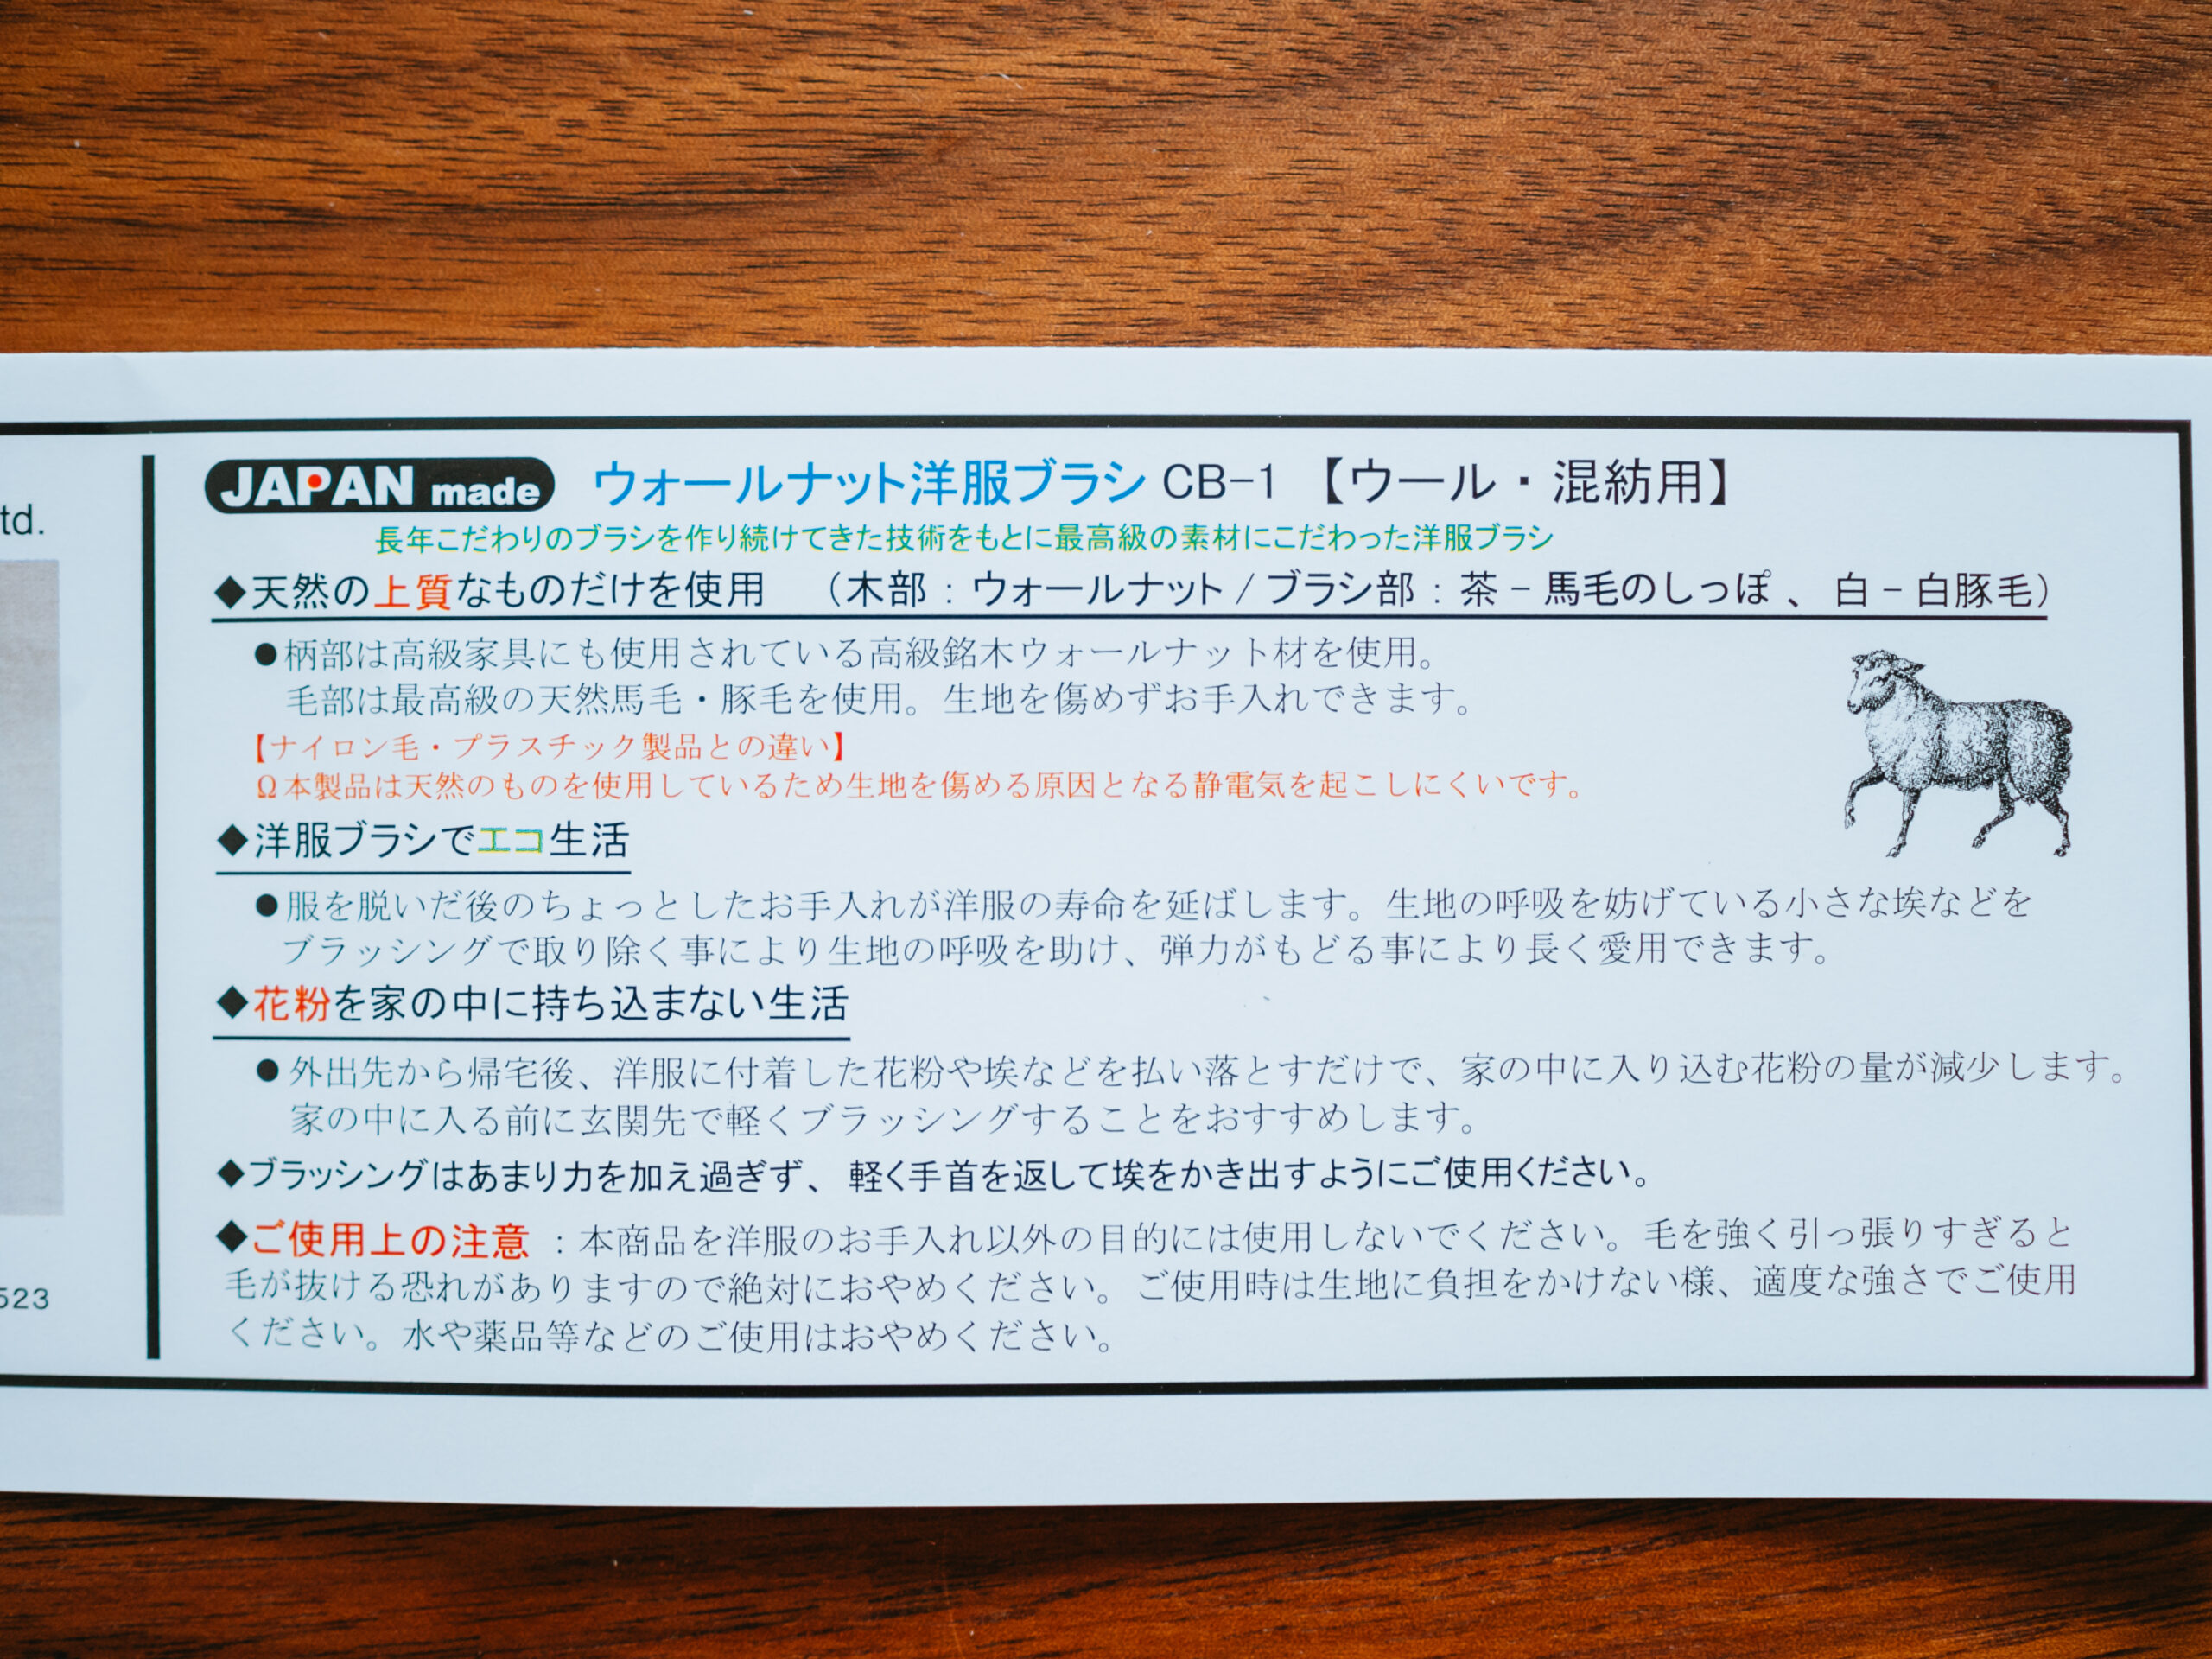 td.
523
JAPAN made ウォールナット洋服ブラシ CB-1 【ウール・混紡用】
長年こだわりのブラシを作り続けてきた技術をもとに最高級の素材にこだわった洋服ブラシ
◆天然の上質なものだけを使用 （木部：ウォールナット / ブラシ部：茶－馬毛のしっぽ 、 白－白豚毛）
●柄部は高級家具にも使用されている高級銘木ウォールナット材を使用。
毛部は最高級の天然馬毛・豚毛を使用。生地を傷めずお手入れできます。
【ナイロン毛・プラスチック製品との違い】
Ω本製品は天然のものを使用しているため生地を傷める原因となる静電気を起こしにくいです。
◆洋服ブラシでエコ生活
●服を脱いだ後のちょっとしたお手入れが洋服の寿命を延ばします。生地の呼吸を妨げている小さな埃などを
ブラッシングで取り除く事により生地の呼吸を助け、弾力がもどる事により長く愛用できます。
◆花粉を家の中に持ち込まない生活
●外出先から帰宅後、洋服に付着した花粉や埃などを払い落とすだけで、家の中に入り込む花粉の量が減少します。
家の中に入る前に玄関先で軽くブラッシングすることをおすすめします。
◆ブラッシングはあまり力を加え過ぎず、軽く手首を返して埃をかき出すようにご使用ください。
◆ご使用上の注意：本商品を洋服のお手入れ以外の目的には使用しないでください。毛を強く引っ張りすぎると
毛が抜ける恐れがありますので絶対におやめください。ご使用時は生地に負担をかけない様、適度な強さでご使用
ください。水や薬品等などのご使用はおやめください。